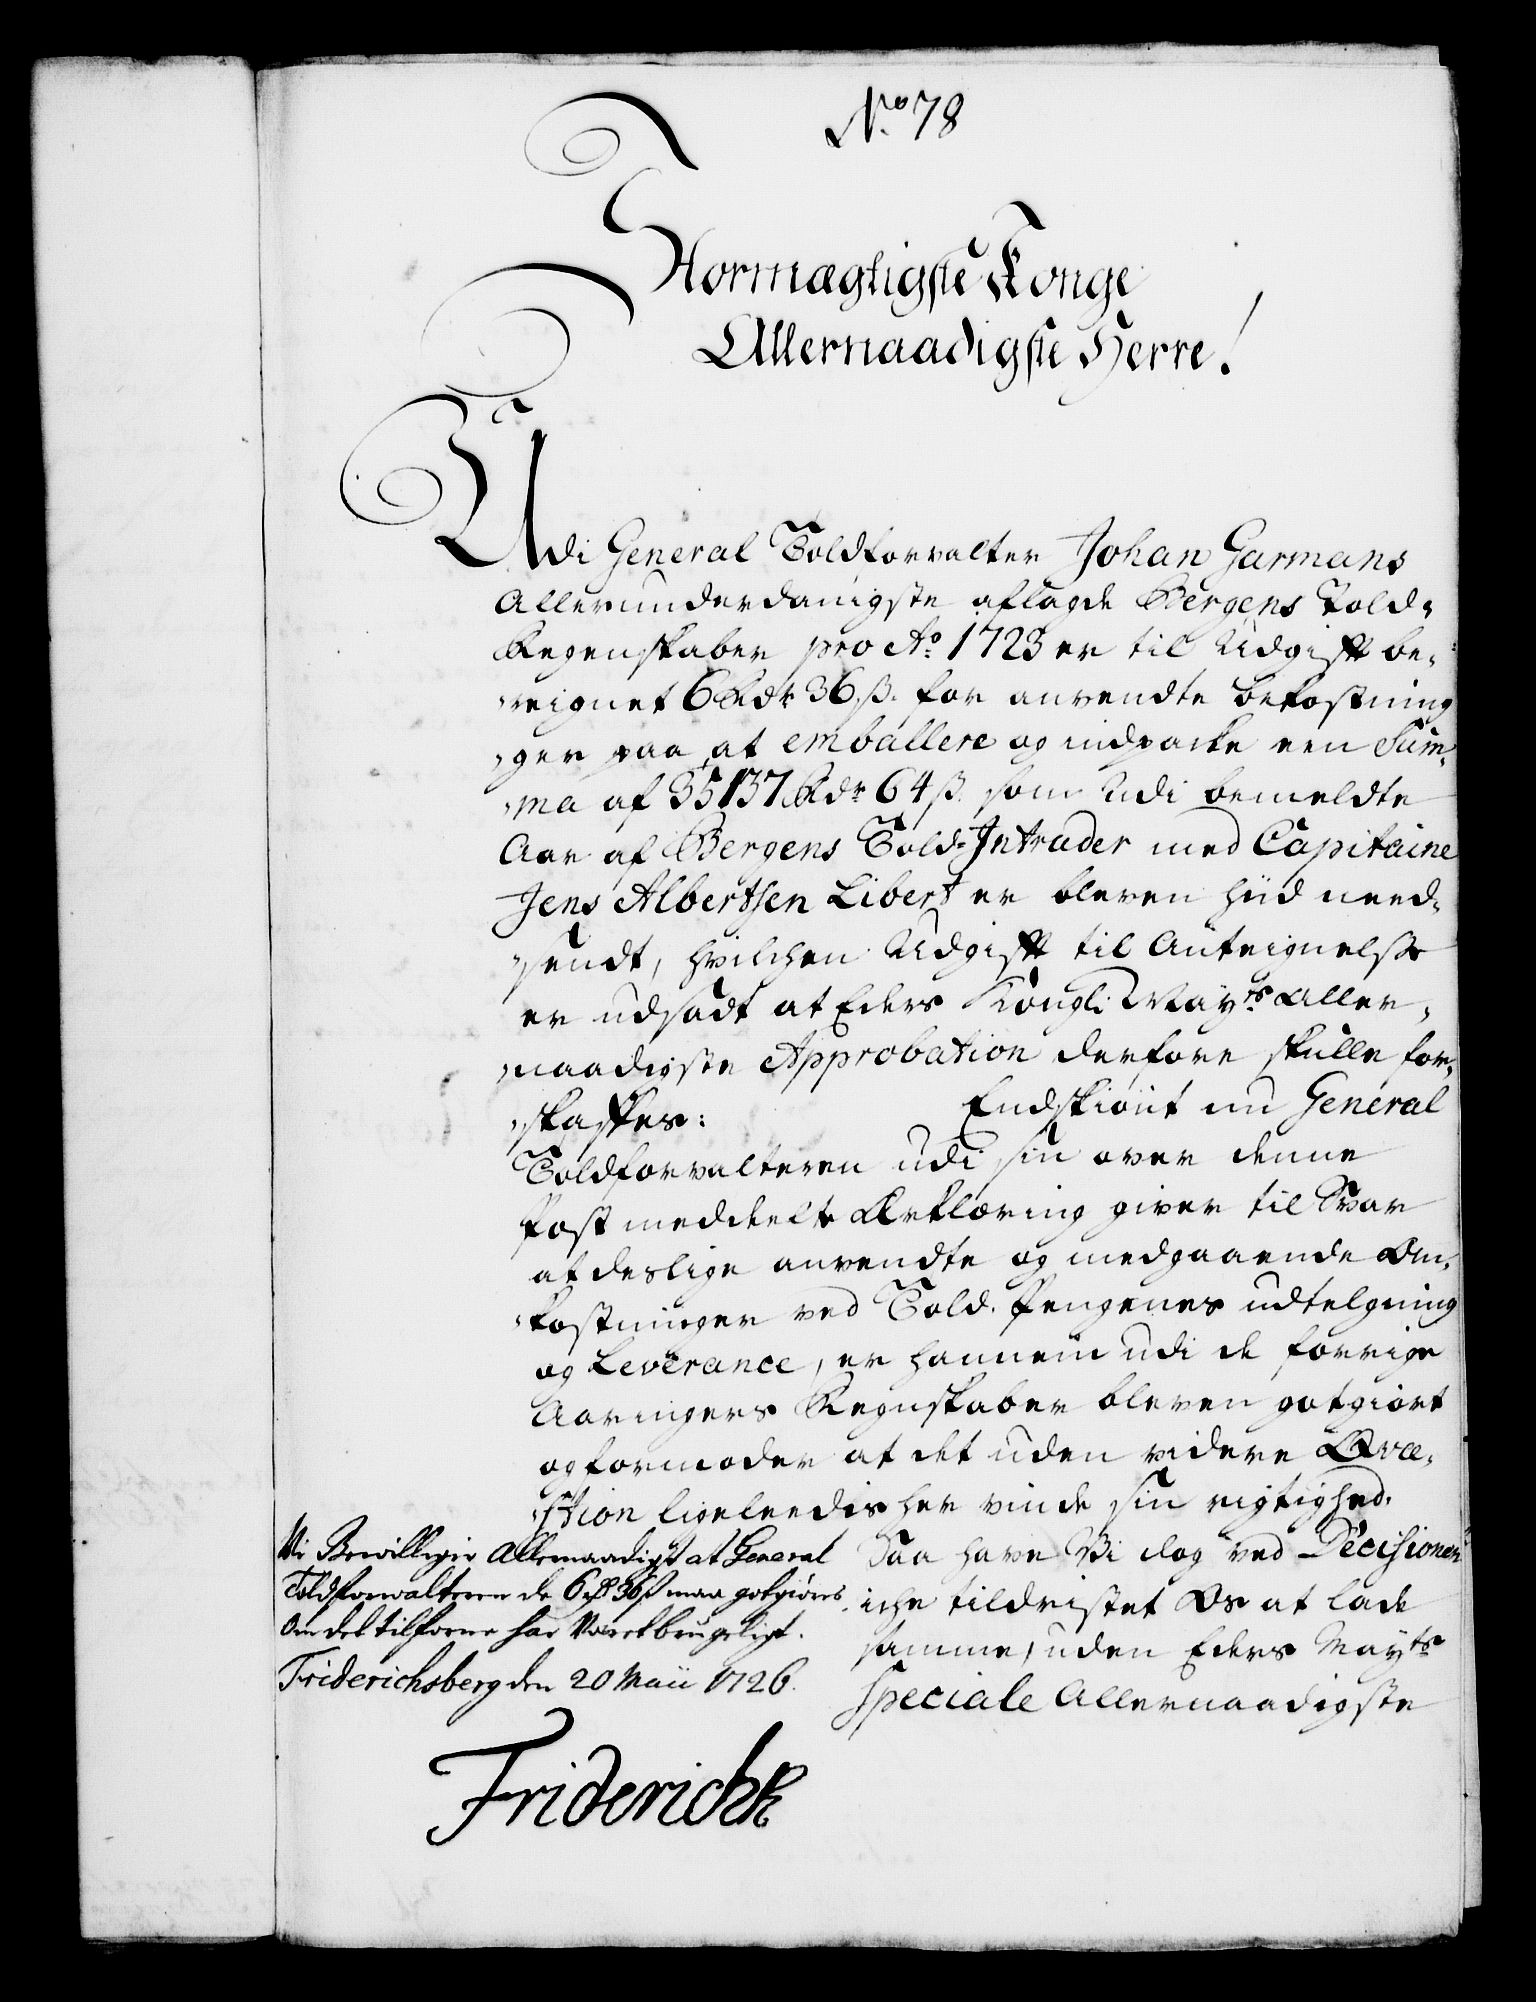 No. 78
Stormægtigste Konge
Allernaadigste Herre!
Udi General Toldforvalter Johan Garmans
Allerunderdanigste aflagde Bergens Told-
Regenskaber pro Ao. 1723 er til Udgifft be-
reignet 6 Rdr 36 ß. for anvendte bekostning
ger paa at emballere og indpacke een Sum-
ma af 35137 Rdr 64 ß. som udi bemeldte
Aar af Bergens Told-Intrader med Capitaine
Jens Albertsen Libert er bleven hiid need-
sendt, hvilchen Udgifft til Anteignelse
er udsadt at Eders Kongli Mayts. Aller-
naadigste Approbation derfore skulle for-
skaffes: Endskiönt nu General
Toldforvalteren udi sin over denne
Post meddeelte Erklæring giver til Svar
at deslige anvendte og medgaaende Om-
kostninger ved Told-Pengenes udtelgning
og Leverance, er hannem udi de forrige
Aaringers Regnskaber bleven gotgiort
og formoder at det uden videre Qvæ-
stion ligeleedis her vinde sin rigtighed.
Saa have Vi dog ved Decisionen
iche tildristet Os at lade
samme, uden Eders Mayts
Speciale Allernaadigste
Vi Bewilliger Allernaadigst at General
Toldforvalteren de 6 rd 36 ß maa gotgiöres
om det tilforne har Været brugeligt.
Friderichsberg den 20 Maii 1726.
Friderich R